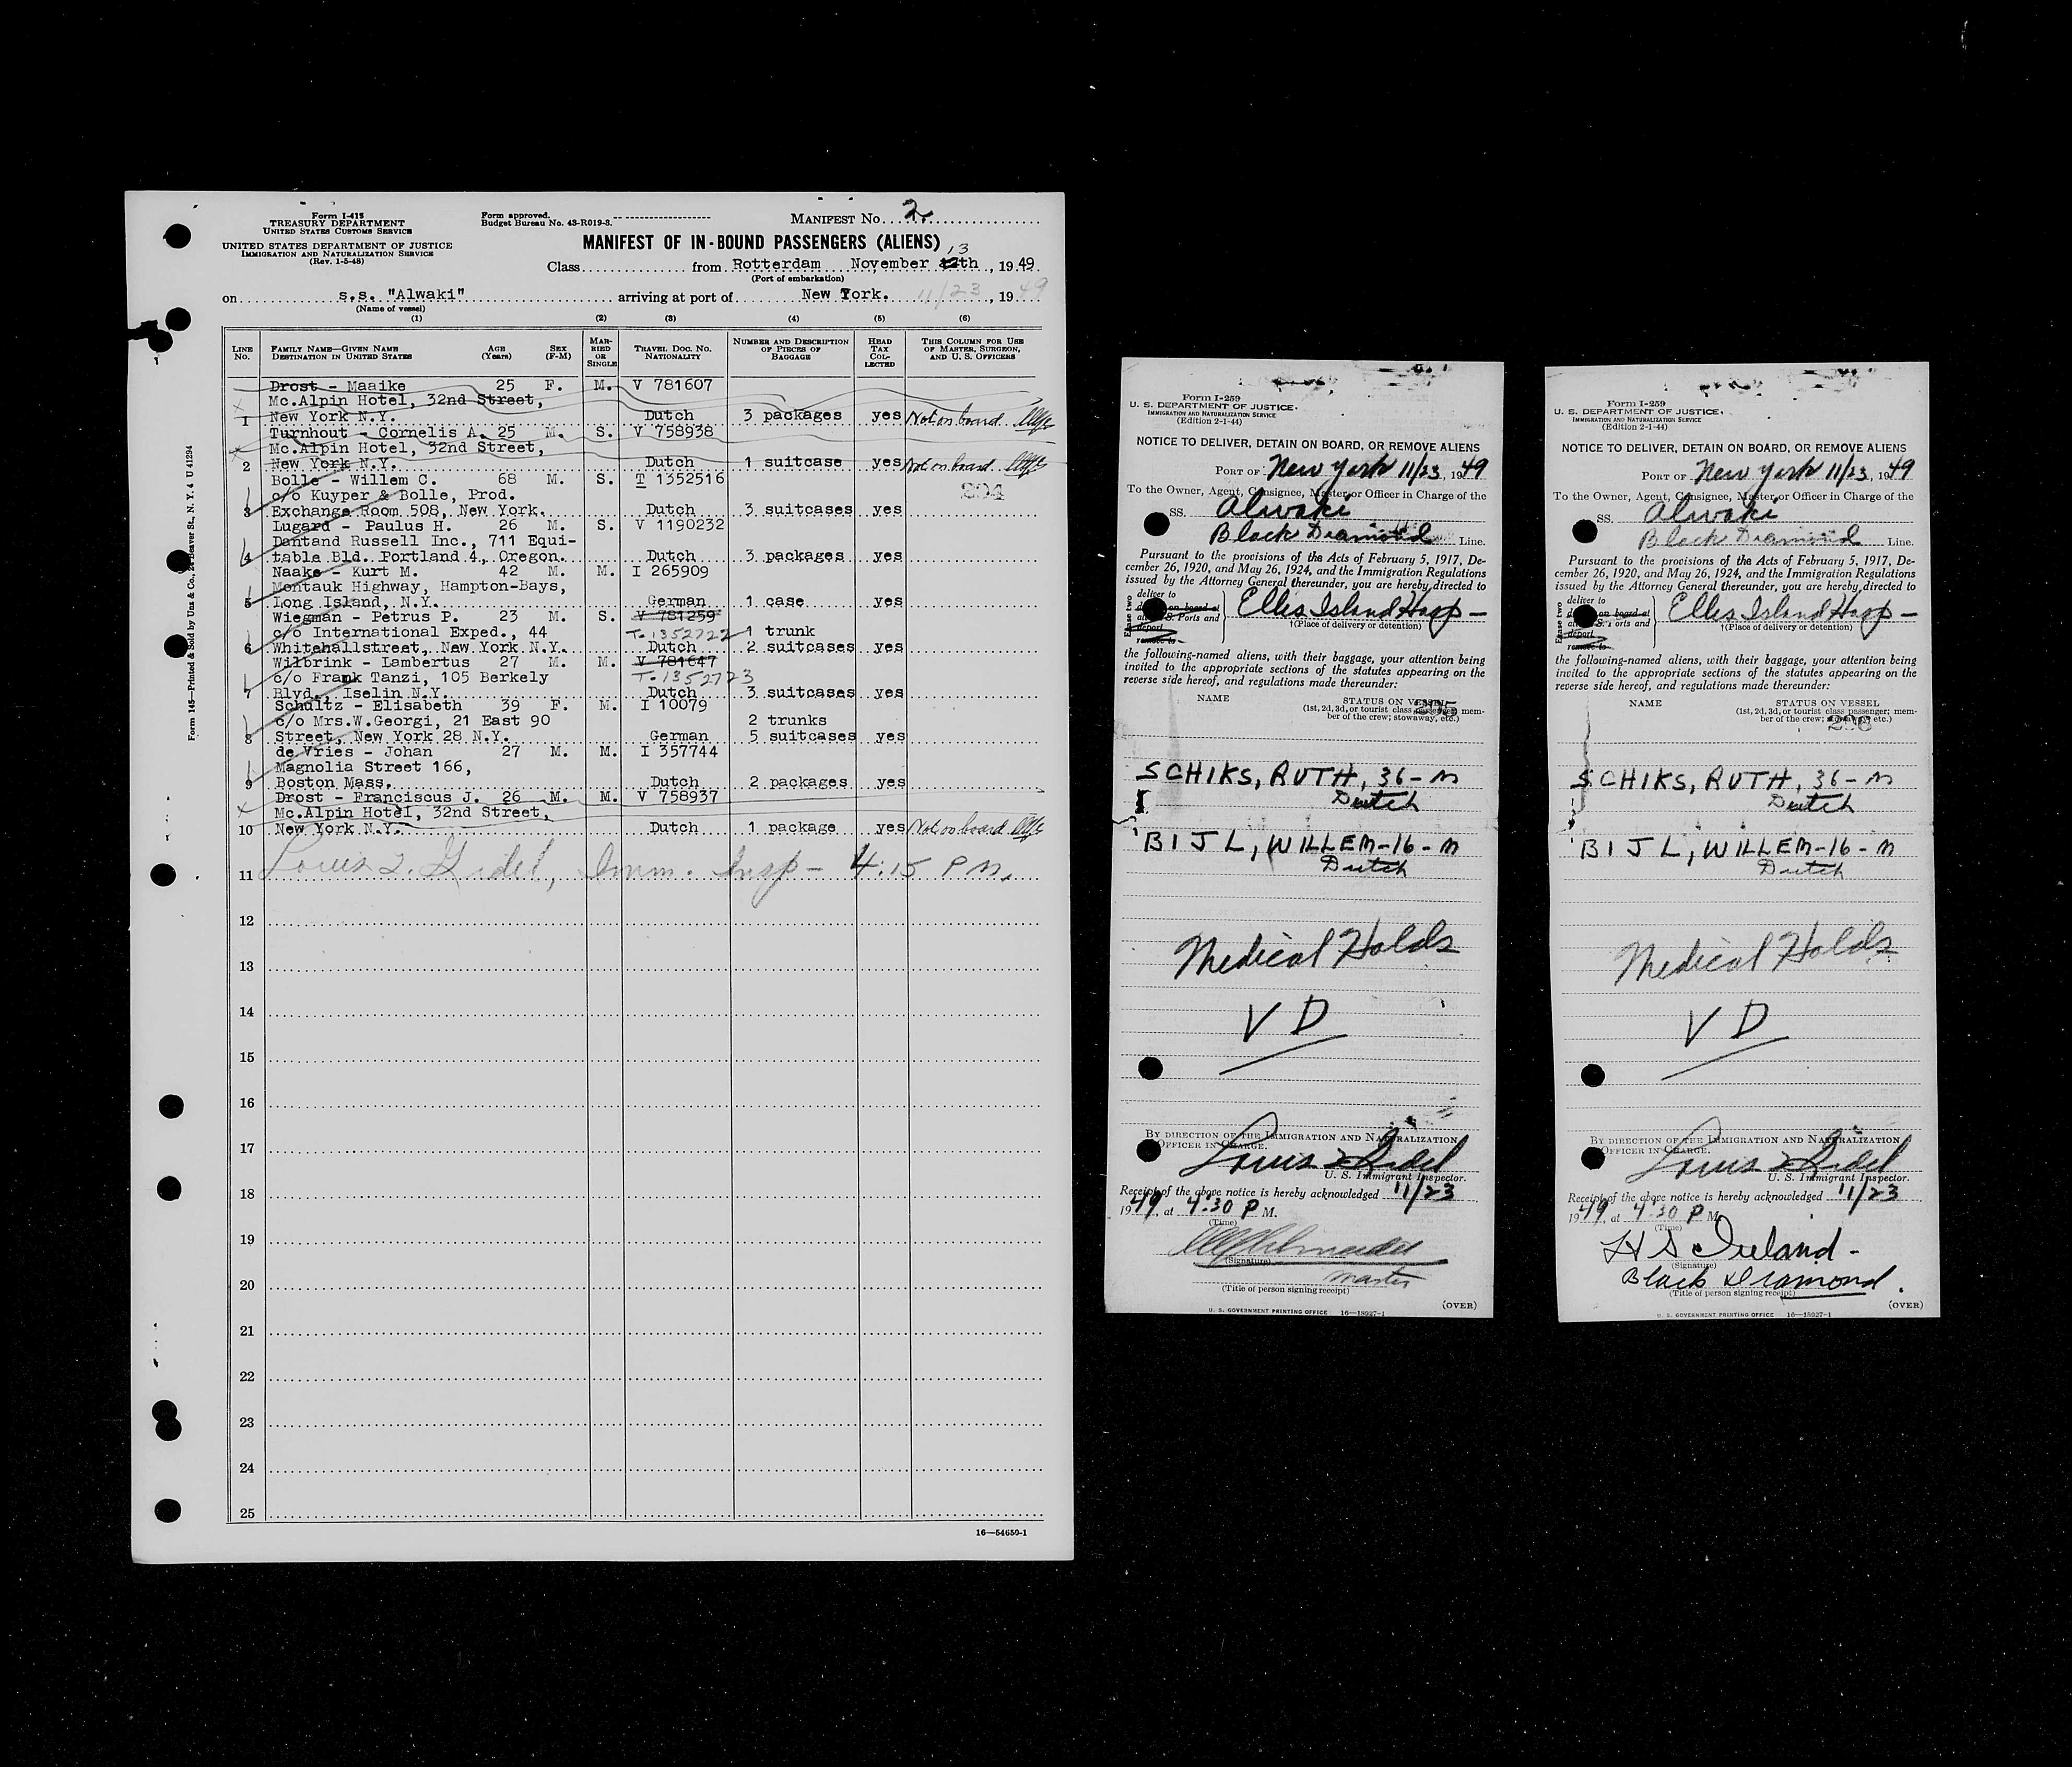 Form I-415
TREASURY DEPARTMENT
UNITED STATES CUSTOMS SERVICE
UNITED STATES DEPARTMENT OF JUSTICE
IMMIGRATION AND NATURALIZATION SERVICE
(Rev. 1-5-48)
Form approved.
Budget Bureau No. 43-R019-3.
MANIFEST No. 2
MANIFEST OF IN-BOUND PASSENGERS (ALIENS)
13
Class from Rotterdam November 12th, 1949
(Port of embarkation)
on s.s. "Alwaki" arriving at port of New York. 11/23, 1949
(Name of vessel)
(1) (2) (3) (4) (5) (6)
LINE No. FAMILY NAME—GIVEN NAME DESTINATION IN UNITED STATES AGE (Years) SEX (F-M) MARRIED OR SINGLE TRAVEL DOC. NO. NATIONALITY NUMBER AND DESCRIPTION OF PIECES OF BAGGAGE HEAD TAX COLLECTED THIS COLUMN FOR USE OF MASTER, SURGEON, AND U. S. OFFICERS
Drost - Maaike 25 F. M. V 781607
Mc.Alpin Hotel, 32nd Street,
1 New York N.Y. Dutch 3 packages yes Not on board
Turnhout - Cornelis A. 25 M. S. V 758938
Mc.Alpin Hotel, 32nd Street,
2 New York N.Y. Dutch 1 suitcase yes Not on board
Bolle - Willem C. 68 M. S. T 1352516
c/o Kuyper & Bolle, Prod. 294
3 Exchange Room 508, New York. Dutch 3 suitcases yes
Lugard - Paulus H. 26 M. S. V 1190232
Dantand Russell Inc., 711 Equi-
4 table Bld. Portland 4, Oregon. Dutch 3 packages yes
Naake - Kurt M. 42 M. M. I 265909
Montauk Highway, Hampton-Bays,
5 Long Island, N.Y. German 1 case yes
Wiegman - Petrus P. 23 M. S. V 781259
c/o International Exped., 44 T-1352722 1 trunk
6 Whitehallstreet, New York N.Y. Dutch 2 suitcases yes
Wilbrink - Lambertus 27 M. M. V 781647
c/o Frank Tanzi, 105 Berkely T-1352723
7 Blvd., Iselin N.Y. Dutch 3 suitcases yes
Schultz - Elisabeth 39 F. M. I 10079
c/o Mrs.W.Georgi, 21 East 90 2 trunks
8 Street, New York 28 N.Y. German 5 suitcases yes
de Vries - Johan 27 M. M. I 357744
Magnolia Street 166,
9 Boston Mass. Dutch 2 packages yes
Drost - Franciscus J. 26 M. M. V 758937
Mc.Alpin Hotel, 32nd Street,
10 New York N.Y. Dutch 1 package yes Not on board
11 Louis Imm. Insp - 4:15 P M.
12
13
14
15
16
17
18
19
20
21
22
23
24
25
16—54650-1
Form 145—Printed & Sold by Unz & Co., 24 Beaver St., N. Y. 4 U 41294
Form I-259
U. S. DEPARTMENT OF JUSTICE
IMMIGRATION AND NATURALIZATION SERVICE
(Edition 2-1-44)
NOTICE TO DELIVER, DETAIN ON BOARD, OR REMOVE ALIENS
PORT OF New York 11/23, 1949
To the Owner, Agent, Consignee, Master, or Officer in Charge of the
SS. Alwaki
Black Diamond Line.
Pursuant to the provisions of the Acts of February 5, 1917, De-
cember 26, 1920, and May 26, 1924, and the Immigration Regulations
issued by the Attorney General thereunder, you are hereby directed to
deliver to
on board at Ellis Island Hosp -
S. Ports and
deport
remove to
†(Place of delivery or detention)
the following-named aliens, with their baggage, your attention being
invited to the appropriate sections of the statutes appearing on the
reverse side hereof, and regulations made thereunder:
NAME STATUS ON VESSEL
(1st, 2d, 3d, or tourist class passenger; mem-
ber of the crew; stowaway, etc.)
295
SCHIKS, RUTH, 36 - M
Dutch
BIJL, WILLEM - 16 - M
Dutch
Medical Holds
V D
BY DIRECTION OF THE IMMIGRATION AND NATURALIZATION
OFFICER IN CHARGE.
Louis
U. S. Immigrant Inspector.
Receipt of the above notice is hereby acknowledged 11/23
1949, at 4:30 P M.
(Time)
(Signature)
Master
(Title of person signing receipt)
(OVER)
U. S. GOVERNMENT PRINTING OFFICE 16—18927-1
Form I-259
U. S. DEPARTMENT OF JUSTICE
IMMIGRATION AND NATURALIZATION SERVICE
(Edition 2-1-44)
NOTICE TO DELIVER, DETAIN ON BOARD, OR REMOVE ALIENS
PORT OF New York 11/23, 1949
To the Owner, Agent, Consignee, Master, or Officer in Charge of the
SS. Alwaki
Black Diamond Line.
Pursuant to the provisions of the Acts of February 5, 1917, De-
cember 26, 1920, and May 26, 1924, and the Immigration Regulations
issued by the Attorney General thereunder, you are hereby directed to
deliver to
on board at Ellis Island Hosp -
S. Ports and
deport
remove to
†(Place of delivery or detention)
the following-named aliens, with their baggage, your attention being
invited to the appropriate sections of the statutes appearing on the
reverse side hereof, and regulations made thereunder:
NAME STATUS ON VESSEL
(1st, 2d, 3d, or tourist class passenger; mem-
ber of the crew; stowaway, etc.)
296
SCHIKS, RUTH, 36 - M
Dutch
BIJL, WILLEM - 16 - M
Dutch
Medical Holds
V D
BY DIRECTION OF THE IMMIGRATION AND NATURALIZATION
OFFICER IN CHARGE.
Louis
U. S. Immigrant Inspector.
Receipt of the above notice is hereby acknowledged 11/23
1949, at 4:30 P M.
(Time)
H S Ireland -
(Signature)
Black Diamond.
(Title of person signing receipt)
(OVER)
U. S. GOVERNMENT PRINTING OFFICE 16—18927-1